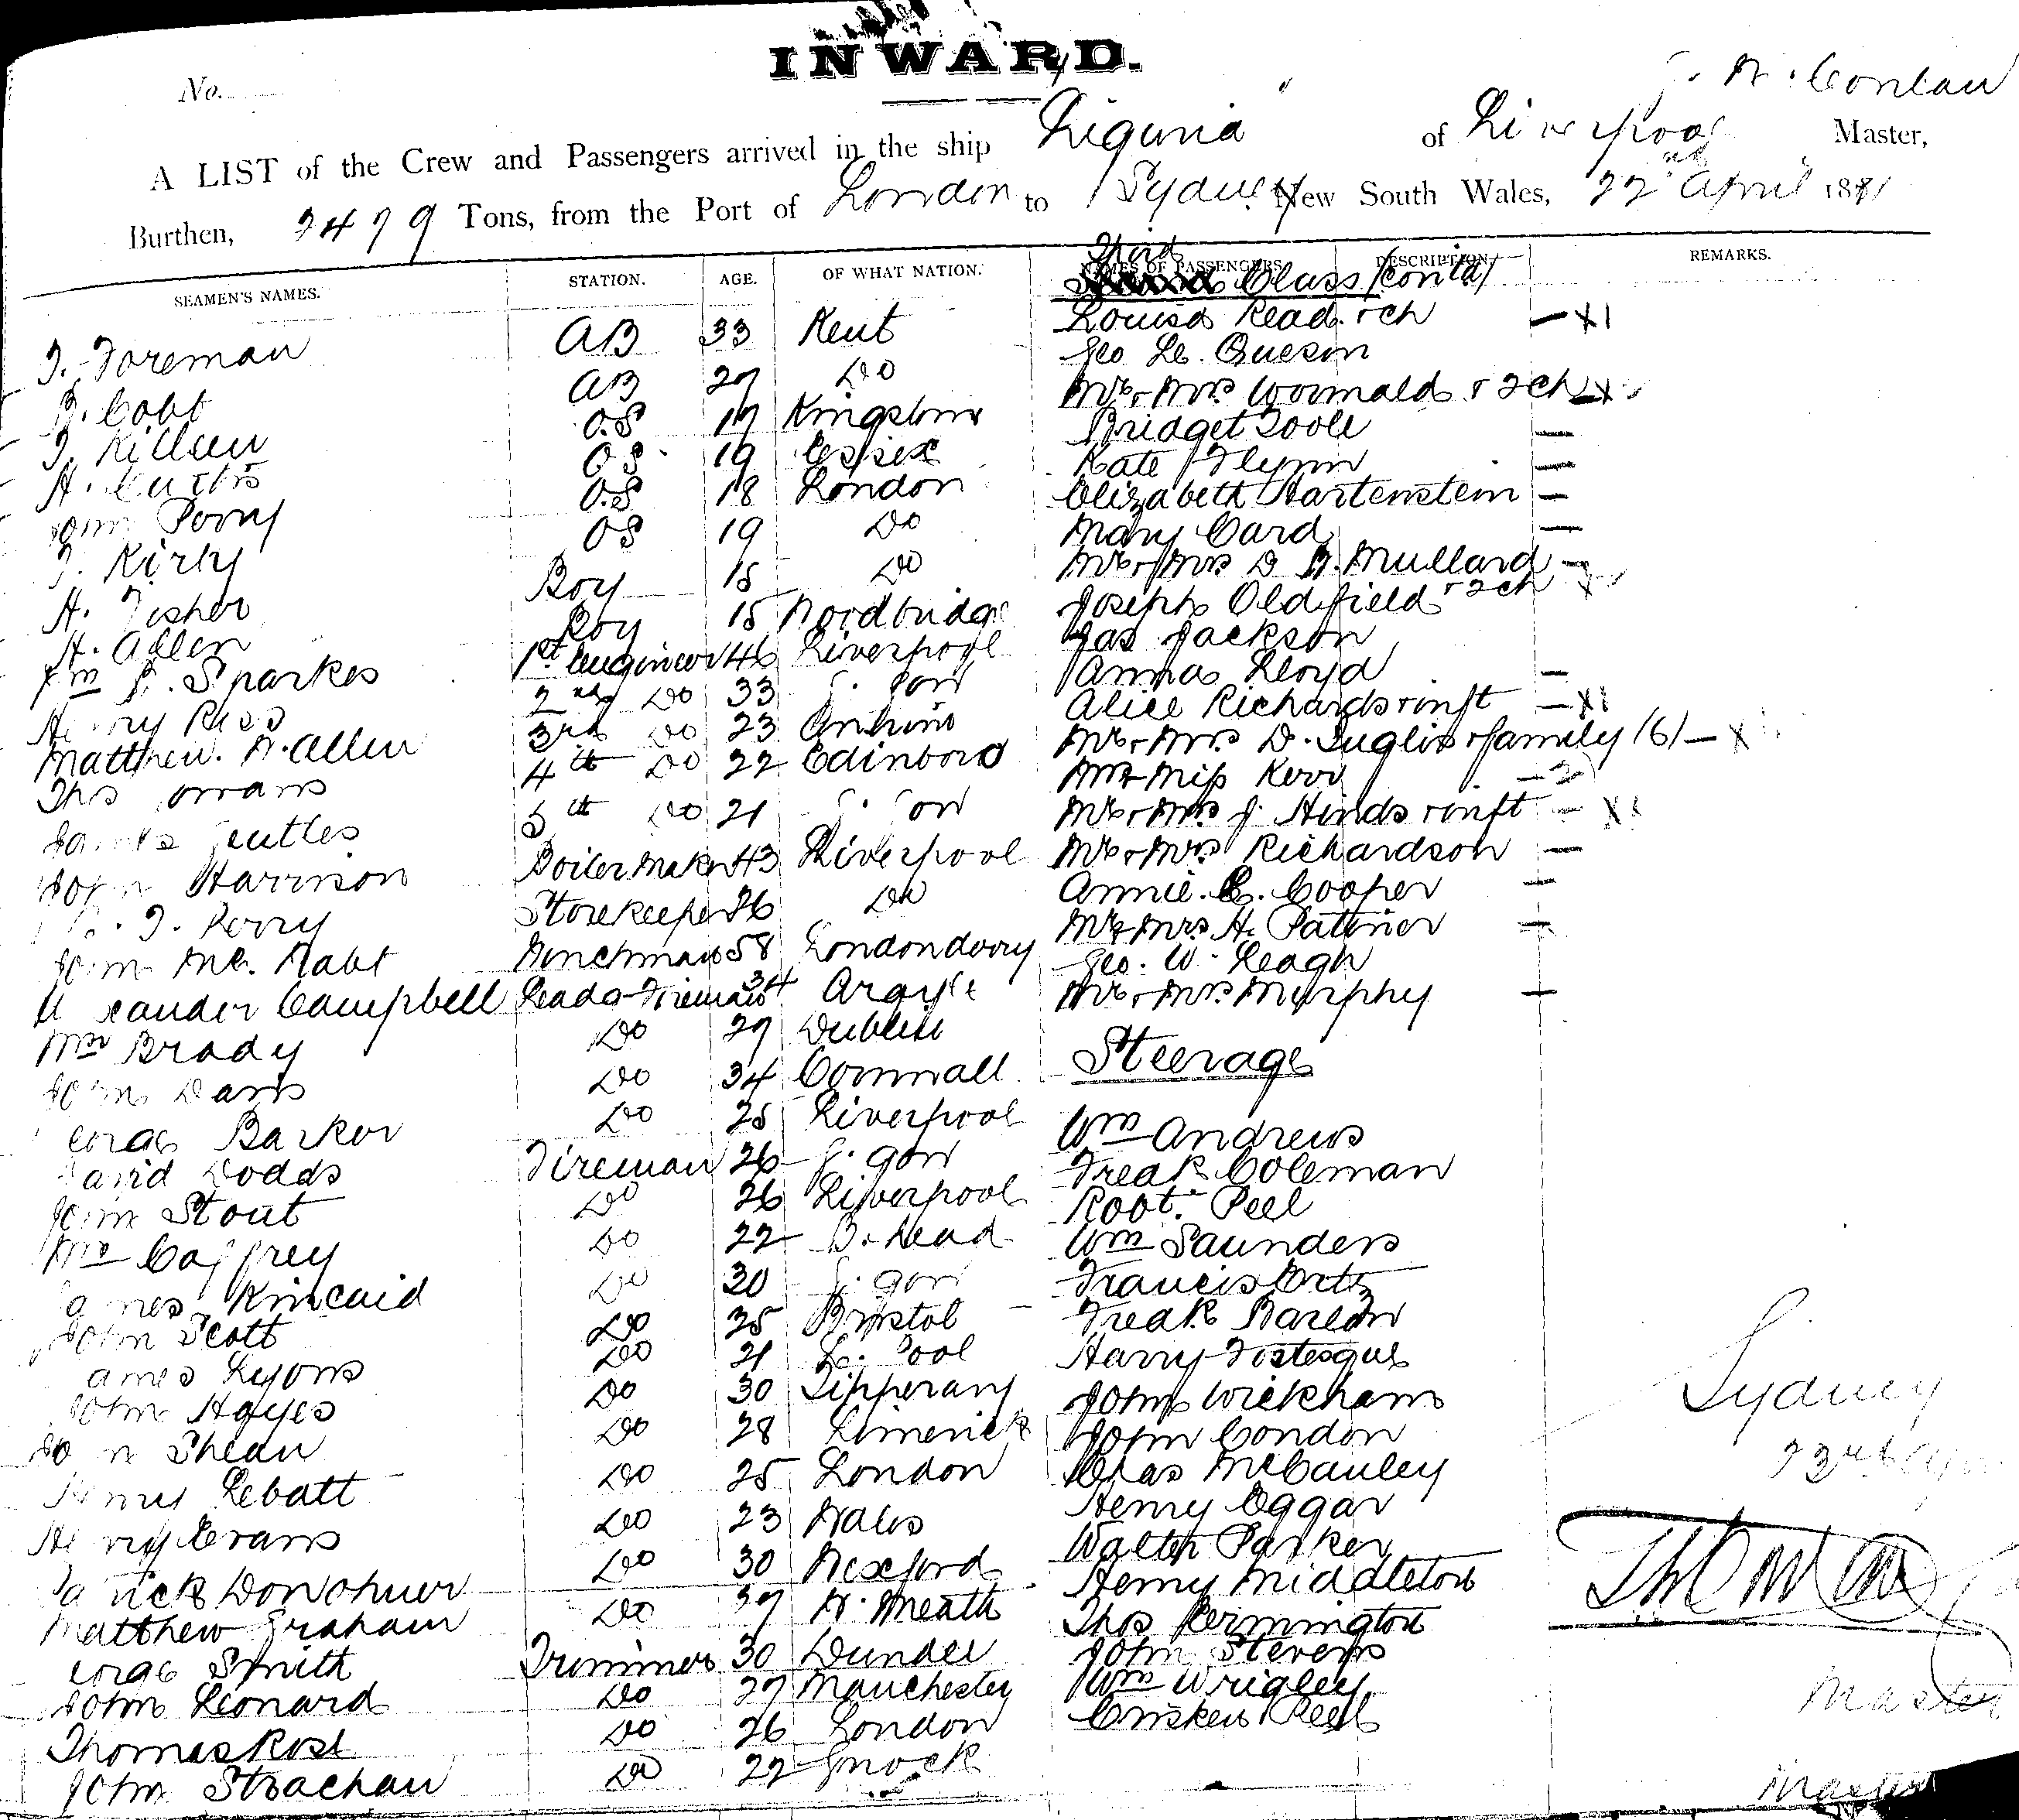 INWARD.
No.
A LIST of the Crew and Passengers arrived in the ship Liguria of Liverpool Master,
Burthen, 2479 Tons, from the Port of London to Sydney New South Wales, 22nd April 1881
SEAMEN'S NAMES. STATION. AGE. OF WHAT NATION. NAMES OF PASSENGERS DESCRIPTION. REMARKS.
Third Class (contd)
T. Foreman AB 33 Kent Louisa Read & ch
Geo Le Quesm
Cobt AB 27 Do Mr & Mrs Wormald & 2 ch
Killeen OS 17 Kingston Bridget Toole
H. Curtis OS 19 Essex Kate Flynn
John Perry OS 18 London Elizabeth Hartenstein
Kirby OS 19 Do Mary Card
H. Fisher Boy 15 Do Mr & Mrs D Mullard
H. Allen Boy 15 Joseph Oldfield & 2 ch
Sparkes 1st Engineer 46 Liverpool Jas Jackson
Henry 2nd Do 33 Annas Lloyd
Matthew Allen 3rd Do 23 Alice Richards & inft
Thos 4th Do 22 Edinboro Mr & Mrs D. Inglis & family (6)
5th Do 21 Mr & Miss Kerr
John Harrison Boiler Maker 43 Liverpool Mr & Mrs J. Hinds & inft
Perry Storekeeper 26 Do Mr & Mrs Richardson
Annie Cooper
John Mc. Nabt Winchman 58 Londonderry Mr & Mrs H. Pattinor
Geo. W. Leagh
Alexander Campbell Leadg Fireman 34 Argyle Mr & Mrs Murphy
Wm Brady Do 27 Dublin
John Davis Do 34 Cornwall Steerage
George Barker Do 25 Liverpool Wm Andrews
David Dodds Fireman 26 Fredk Coleman
John Stout Do 26 Liverpool Robt. Peel
Mc Caffrey Do 22 B. head Wm Saunders
James Kincaid Do 30 Francis Orts
John Scott Do 25 Bristol Fredk Barlow
James Lyons Do 21 L. Pool Harry Fostesque
John Hayes Do 30 Tipperary John Wickham
John Shean Do 28 Limerick John Condon
Henry Lebatt Do 25 London Chas McCauley
Henry Evans Do 23 Wales Henry Oggar
Walter Parker
Patrick Donohuer Do 30 Wexford Henry Middleton
Matthew Graham Do 37 W. Meath Thos Permington
George Smith Trimmer 30 Dundee John Stevens
John Leonard Do 27 Manchester Wm Wrigley
Thomas Rose Do 26 London Peel
John Strachan Do 22 Gnock
Sydney
23rd Apr
Master
Master